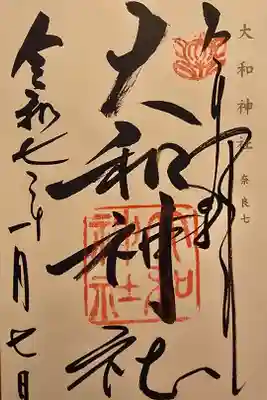 大和神社 奈良七
大和神社
大和神社
令和七年一月七日